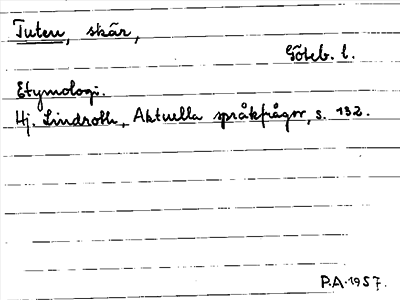 Tuten, skär,
Göteb. l.
Etymologi.
Hj. Lindroth, Aktuella språkfrågor, s. 132.
P.A. 1957.